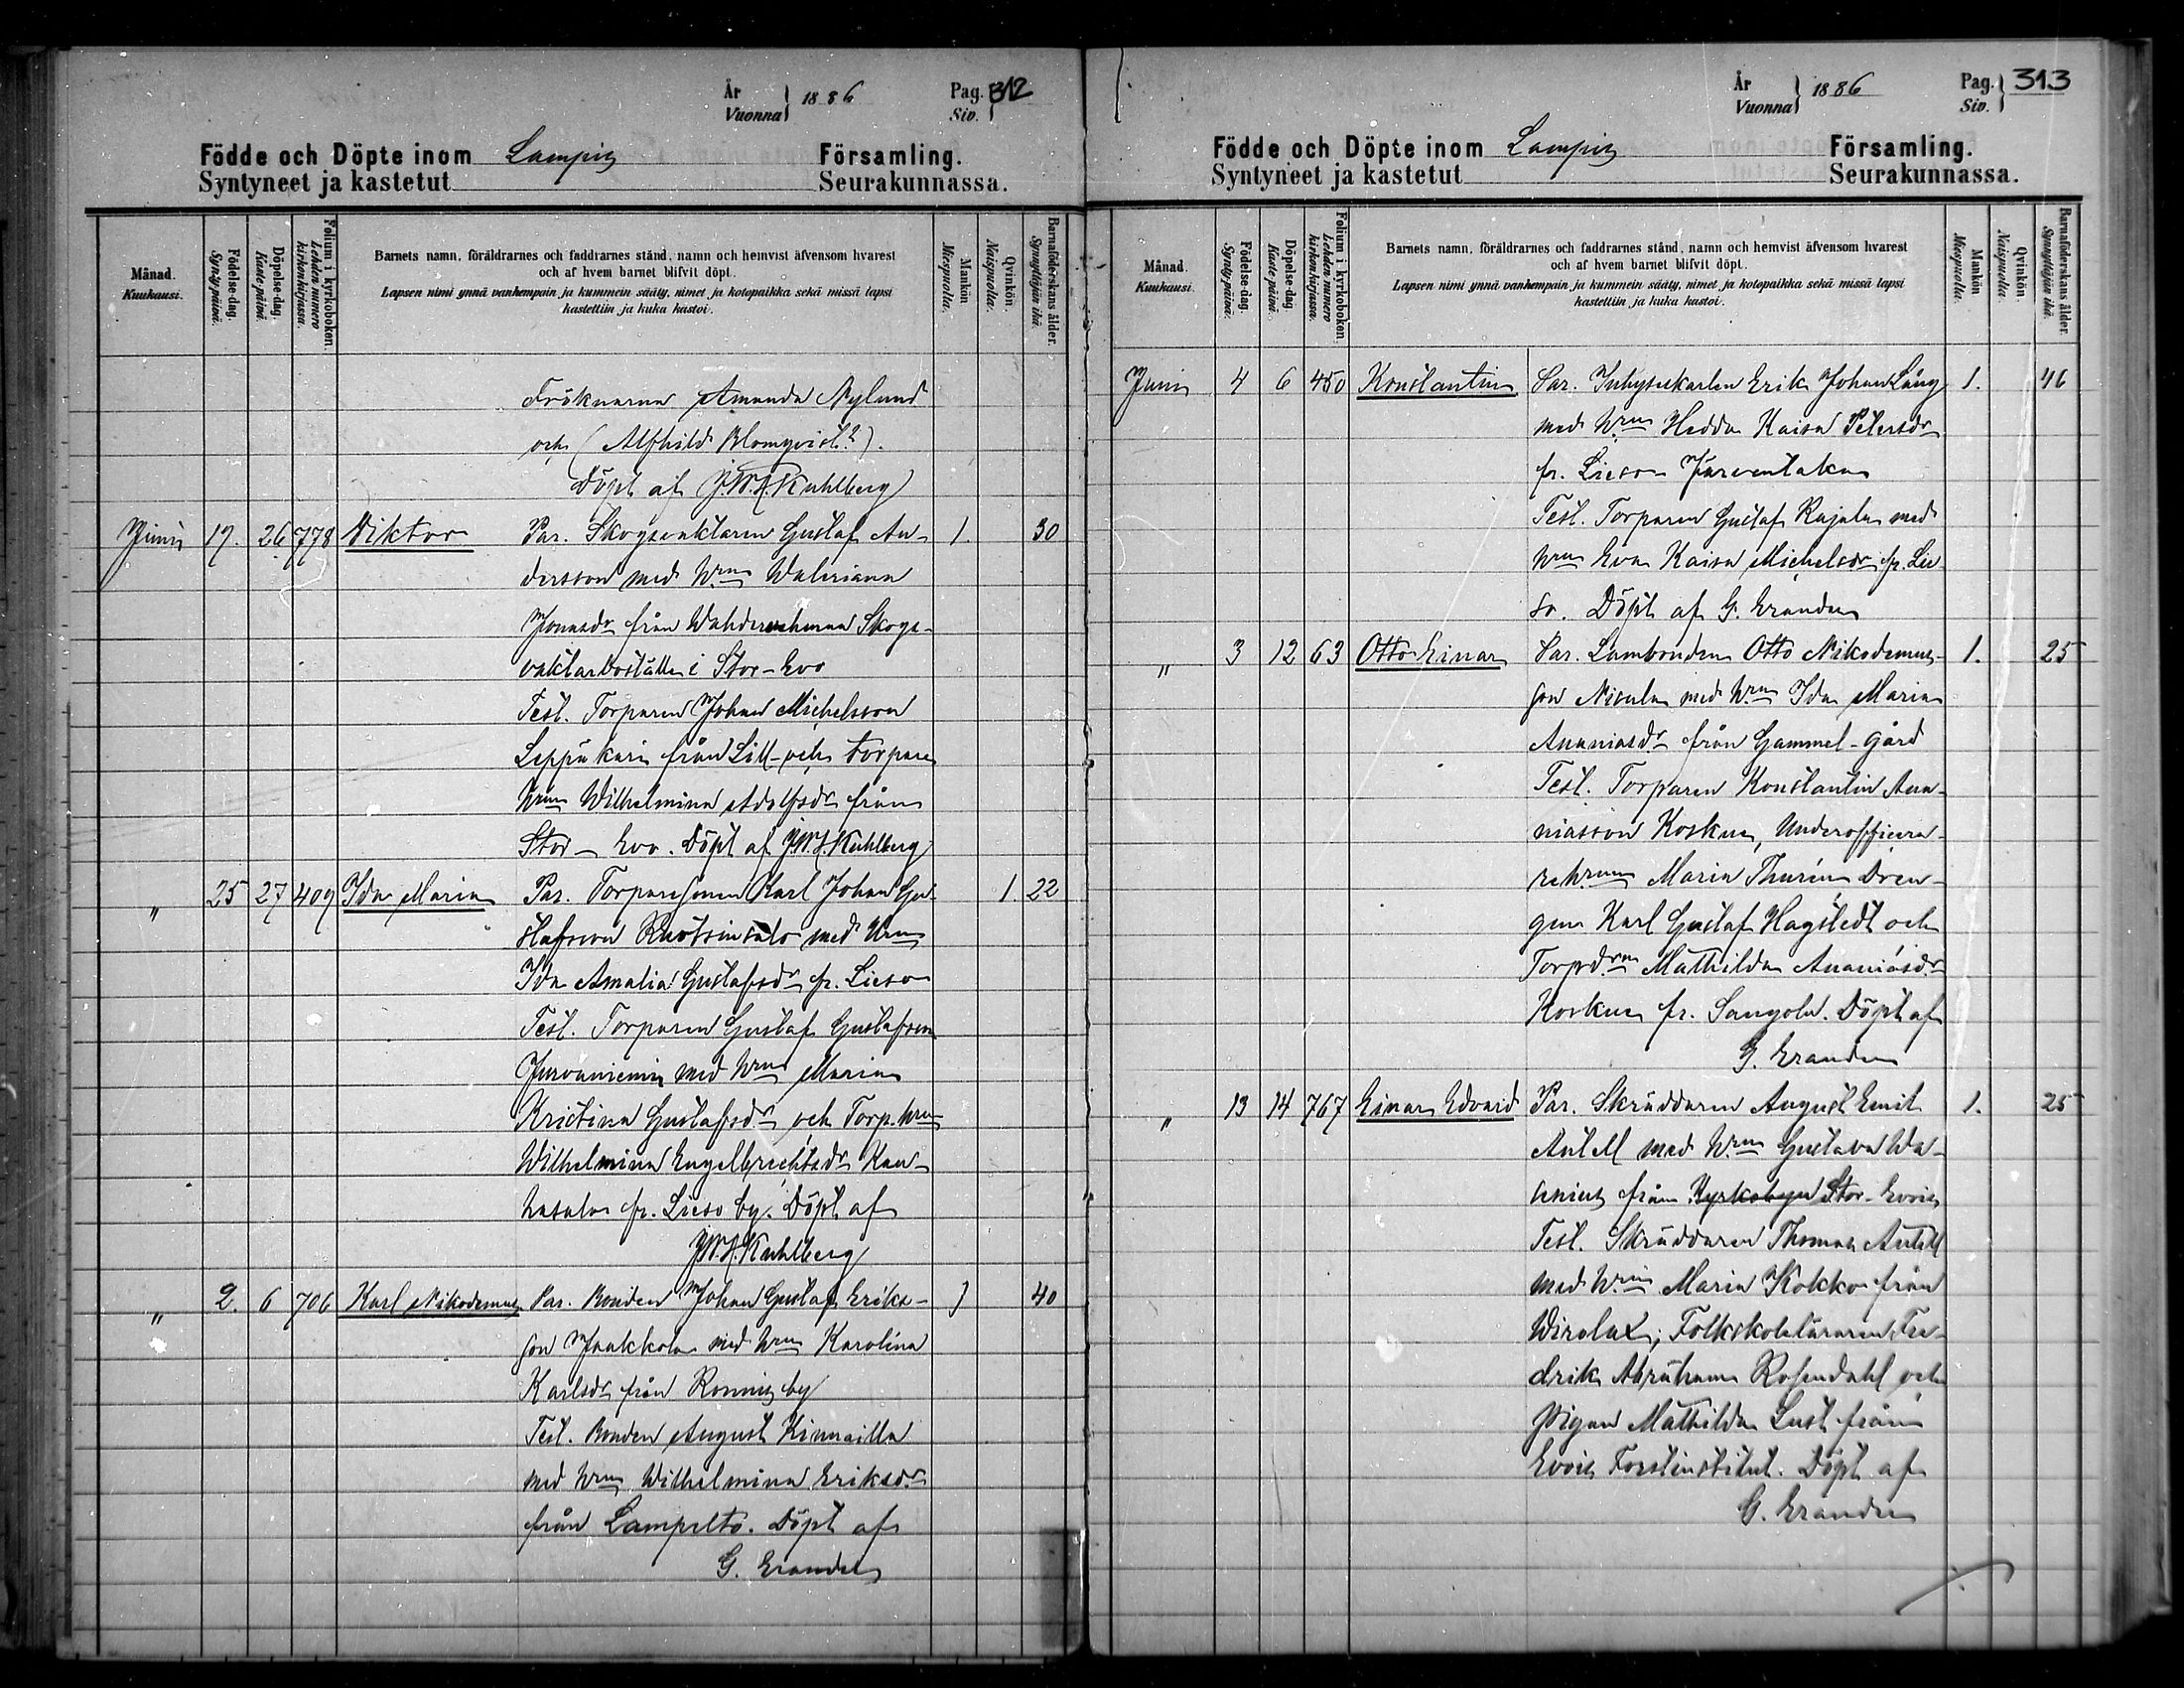 År
Vuonna } 1886
Pag.
Siv. } 312
Födde och Döpte inom Lampis Församling.
Syntyneet ja kastetut Seurakunnassa.
Månad.
Kuukausi.
Födelse-dag.
Synty-päivä.
Döpelse-dag.
Kaste-päivä.
Folium i kyrkoboken.
Lehden numero kirkonkirjassa.
Barnets namn, föräldrarnes och faddrarnes stånd, namn och hemvist äfvensom hvarest
och af hvem barnet blifvit döpt.
Lapsen nimi ynnä vanhempain ja kummein sääty, nimet ja kotopaikka sekä missä lapsi
kastettiin ja kuka kastoi.
Mankön.
Miespuolta.
Qvinkön.
Naispuolta.
Barnaföderskans ålder.
Synnyttäjän ikä.
Fröknarna Amanda Nylund
och (Alfhild Blomqvist?).
Döpt af J.W.A. Kuhlberg
Junii 17. 26 778 Viktor Par. Skogsvaktaren Gustaf An- 1. 30
dersson med hrun Valeriana
Jonasdr från Wahdervehmaa Skogs-
vaktarboställe i Stor-Evo
Test. Torparen Johan Michelsson
Leppäkari från Lill- och torpare
hrun Wilhelmina Adolfsdr från
Stor-Evo. Döpt af J.W.A. Kuhlberg
" 25 27 409 Ida Maria Par. Torparesonen Karl Johan Gu- 1. 22
stafsson Ruotsinsalo med hrun
Ida Amalia Gustafsdr fr. Lieso
Test. Torparen Gustaf Gustafsson
Jurvaniemi med hrun Maria
Kristina Gustafsdr och Torp.hrun
Wilhelmina Engelbrechtsdr Kan-
kasalo fr. Lieso by. Döpt af
J.W.A. Kuhlberg
" 2. 6 706 Karl Nikodemus Par. Bonden Johan Gustaf Eriks- 1 40
son Jaakkola med hrun Karolina
Karlsdr från Ronnis by
Test. Bonden August Kinnailla
med hrun Wilhelmina Eriksdr
från Lampelto. Döpt af
G. Erander
År
Vuonna } 1886
Pag.
Siv. } 313
Födde och Döpte inom Lampis Församling.
Syntyneet ja kastetut Seurakunnassa.
Månad.
Kuukausi.
Födelse-dag.
Synty-päivä.
Döpelse-dag.
Kaste-päivä.
Folium i kyrkoboken.
Lehden numero kirkonkirjassa.
Barnets namn, föräldrarnes och faddrarnes stånd, namn och hemvist äfvensom hvarest
och af hvem barnet blifvit döpt.
Lapsen nimi ynnä vanhempain ja kummein sääty, nimet ja kotopaikka sekä missä lapsi
kastettiin ja kuka kastoi.
Mankön
Miespuolta.
Qvinkön.
Naispuolta.
Barnaföderskans ålder.
Synnyttäjän ikä.
Junii 4 6 450 Konstantin Par. Inhysekarlen Erik Johan Lång 1. 46
med hrun Hedda Kaisa Petersdr
fr. Lieso Järventaka
Test. Torparen Gustaf Rajala med
hrun Eva Kaisa Michelsdr fr. Lie
so. Döpt af G. Erander
" 3 12 63 Otto Einar Par. Lambonden Otto Nikodemus- 1. 25
son Nisula med hrun Ida Maria
Ananiasdr från Gammel-gård
Test. Torparen Konstantin Ana-
niasson Koskue, Underofficera-
rehrun Maria Thurén Dren-
gen Karl Gustaf Hagstedt och
Torpdrn Mathilda Ananiasdr
Koskue fr. Sangola. Döpt af
G. Erander
" 13 14 767 Einar Edvard Par. Skräddaren August Emil 1. 25
Antell med hrun Gustava Wa-
enius från Kyrkobyn Stor-Evois
Test. Skräddaren Thomas Antell
med hrun Maria Kokko från
Wirolax; Folkskoleläraren Fre-
drik Abraham Rosendahl och
Pigan Mathilda Lust från
Evois Forstinstitut. Döpt af
G. Erander